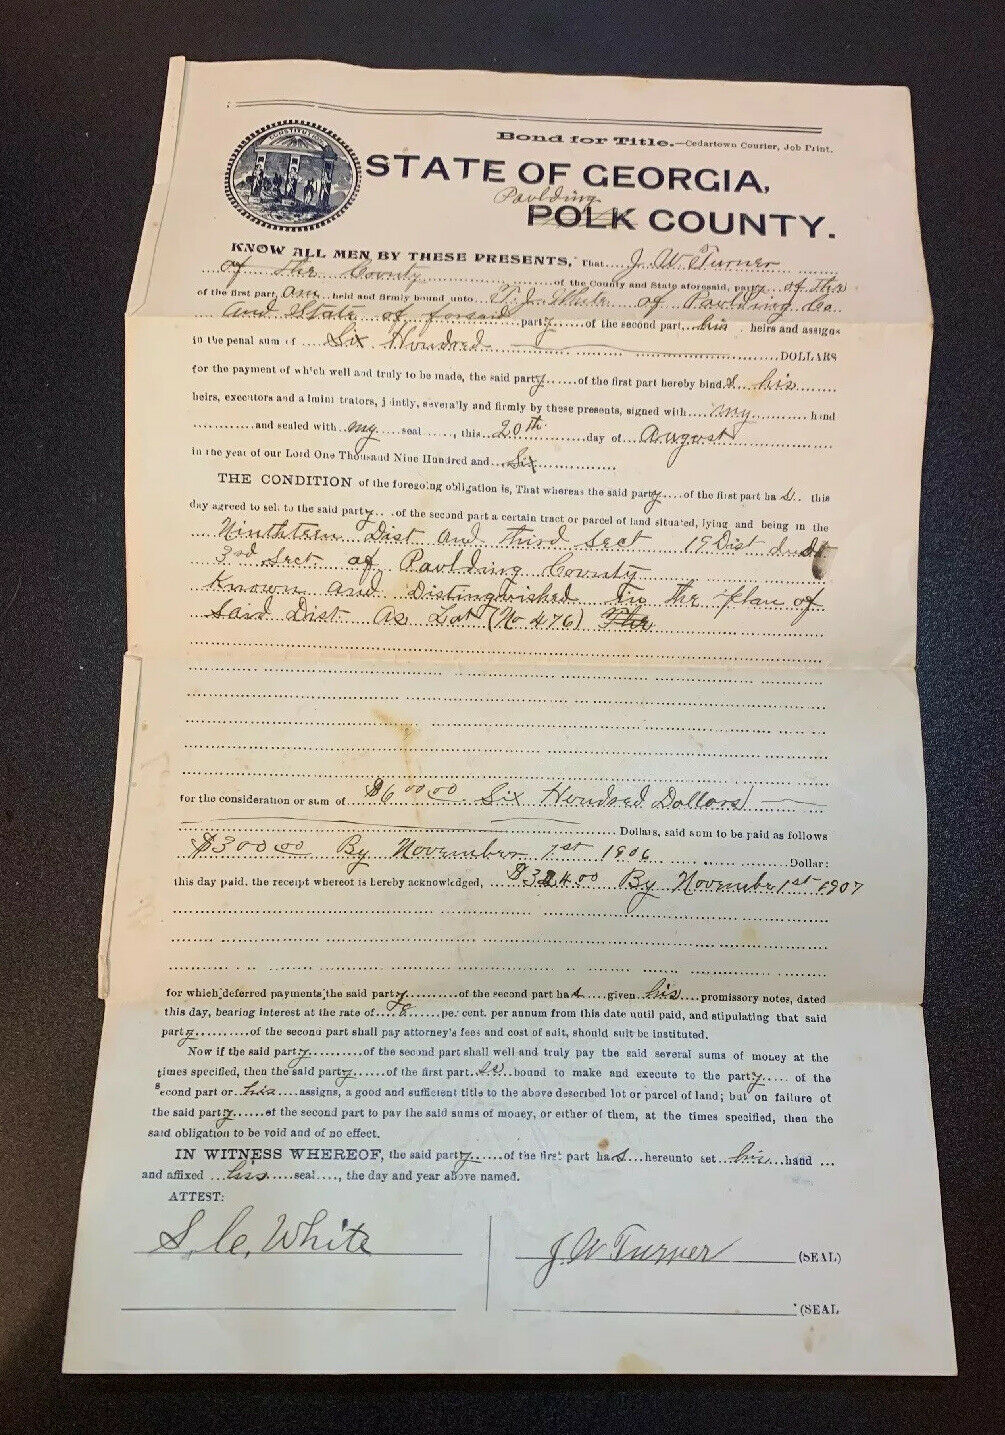 Bond for Title.—Cedartown Courier, Job Print.
CONSTITUTION
STATE OF GEORGIA,
Paulding
POLK COUNTY.
KNOW ALL MEN BY THESE PRESENTS, That J. W. Turner
of the County of the County and State aforesaid, party of the
of the first part, am held and firmly bound unto of Paulding Co
And State of forsaid party of the second part, his heirs and assigns
in the penal sum of Six Hundred DOLLARS
for the payment of which well and truly to be made, the said party of the first part hereby binds his
heirs, executors and admini trators, jointly, severally and firmly by these presents, signed with my hand
and sealed with my seal, this 20th day of August
in the year of our Lord One Thousand Nine Hundred and Six
THE CONDITION of the foregoing obligation is, That whereas the said party of the first part has this
day agreed to sell to the said party of the second part a certain tract or parcel of land situated, lying and being in the
Ninthteen Dist and third Sect 19 Dist
3rd Sect of Paulding County
Known and Distingwished in the plan of
Said Dist As Lot (No 476) The
for the consideration or sum of $600.00 Six Hundred Dollars
Dollars, said sum to be paid as follows
$300.00 By November 1st 1906 Dollar:
this day paid, the receipt whereof is hereby acknowledged, $324.00 By November 1st 1907
for which deferred payments the said party of the second part has given his promissory notes, dated
this day, bearing interest at the rate of per cent. per annum from this date until paid, and stipulating that said
party of the second part shall pay attorney's fees and cost of suit, should suit be instituted.
Now if the said party of the second part shall well and truly pay the said several sums of money at the
times specified, then the said party of the first part is bound to make and execute to the party of the
second part or his assigns, a good and sufficient title to the above described lot or parcel of land; but on failure of
the said party of the second part to pay the said sums of money, or either of them, at the times specified, then the
said obligation to be void and of no effect.
IN WITNESS WHEREOF, the said party of the first part has hereunto set his hand
and affixed his seal, the day and year above named.
ATTEST:
S. C. White
J. W Turner (SEAL)
(SEAL